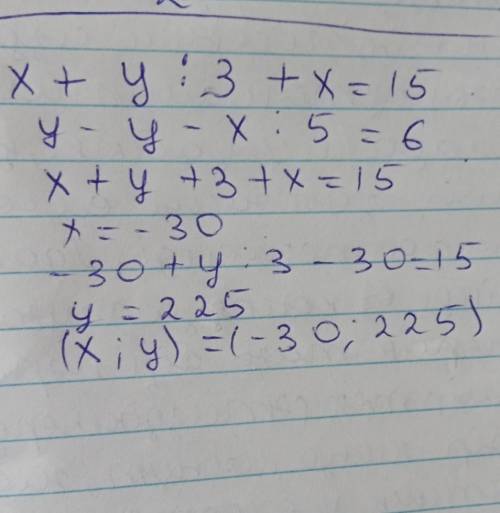 x + y : 3 + x = 15
y - y - x : 5 = 6
x + y + 3 + x = 15
x = - 30
- 30 + y : 3 - 30 = 15
y = 225
(x ; y) = (- 30 ; 225)